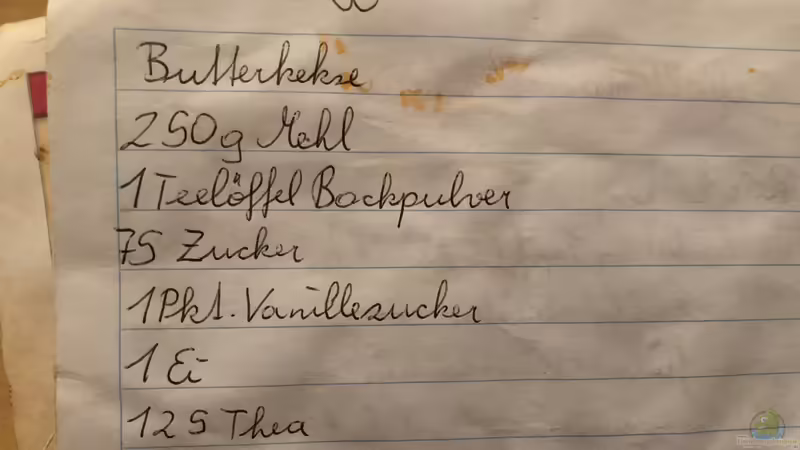 Butterkekse
250g Mehl
1 Teelöffel Backpulver
75 Zucker
1 Pkt. Vanillezucker
1 Ei
125 Thea